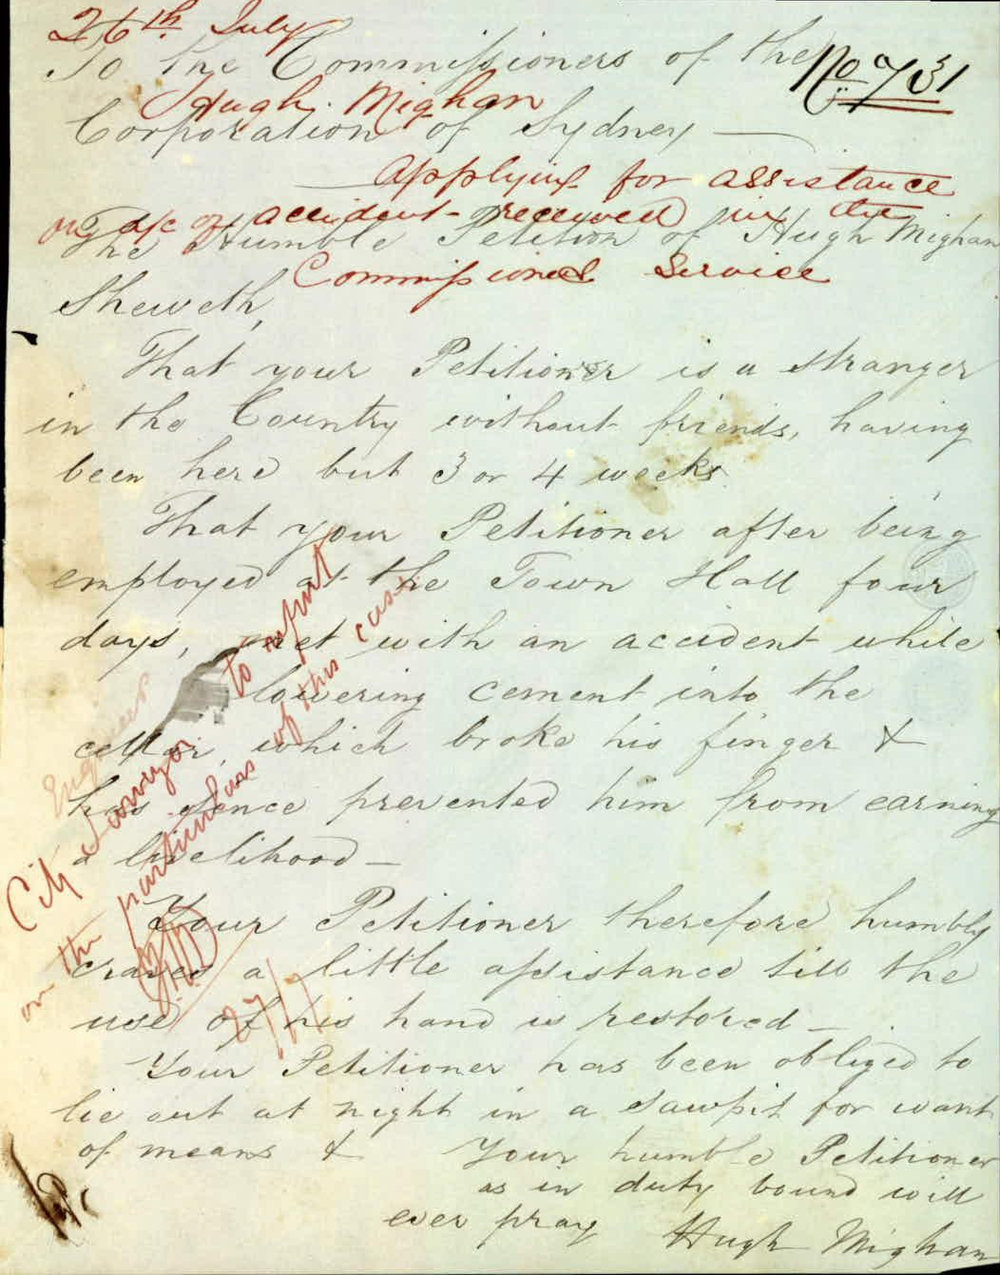 26th July
To the Commissioners of the
No 731
Hugh Mighan
Corporation of Sydney
applying for assistance
on a/c of accident received in the
The Humble Petition of Hugh Mighan
Commissioners Service
Sheweth,
That your Petitioner is a stranger
in the Country without friends, having
been here but 3 or 4 weeks
That your Petitioner after being
employed at the Town Hall four
days, met with an accident while
lowering cement into the
cellar, which broke his finger &
has sence prevented him from earning
a livelihood —
Your Petitioner therefore humbly
craves a little assistance till the
use of his hand is restored —
Your Petitioner has been obliged to
lie out at night in a sawpit for want
of means & Your humble Petitioner
as in duty bound will
ever pray Hugh Mighan
Engineer
City Surveyor to report
on the particulars of this case
27/7